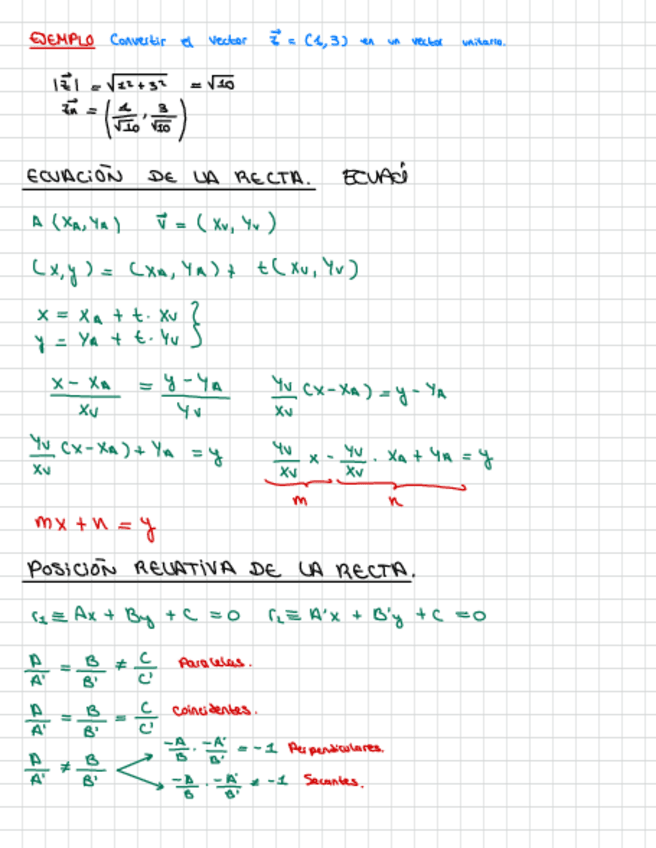 EJEMPLO Convertir el vector z⃗ = (1,3) en un vector unitario.
|z⃗| = √1²+3² = √10
z⃗u = (1/√10, 3/√10)
ECUACIÓN DE LA RECTA. ECUACI
A (XA, YA) v⃗ = (Xv, Yv)
(x,y) = (XA, YA) + t(Xv, Yv)
x = XA + t · Xv }
y = YA + t · Yv }
x - XA / Xv = y - YA / Yv Yv/Xv (x-XA) = y - YA
Yv/Xv (x-XA) + YA = y Yv/Xv x - Yv/Xv · XA + YA = y
m n
mx + n = y
POSICIÓN RELATIVA DE LA RECTA.
r1 ≡ Ax + By + C = 0 r2 ≡ A'x + B'y + C = 0
A/A' = B/B' ≠ C/C' Paralelas.
A/A' = B/B' = C/C' Coincidentes.
A/A' ≠ B/B' -A/B · -A'/B' = -1 Perpendiculares.
-A/B · -A'/B' ≠ -1 Secantes.